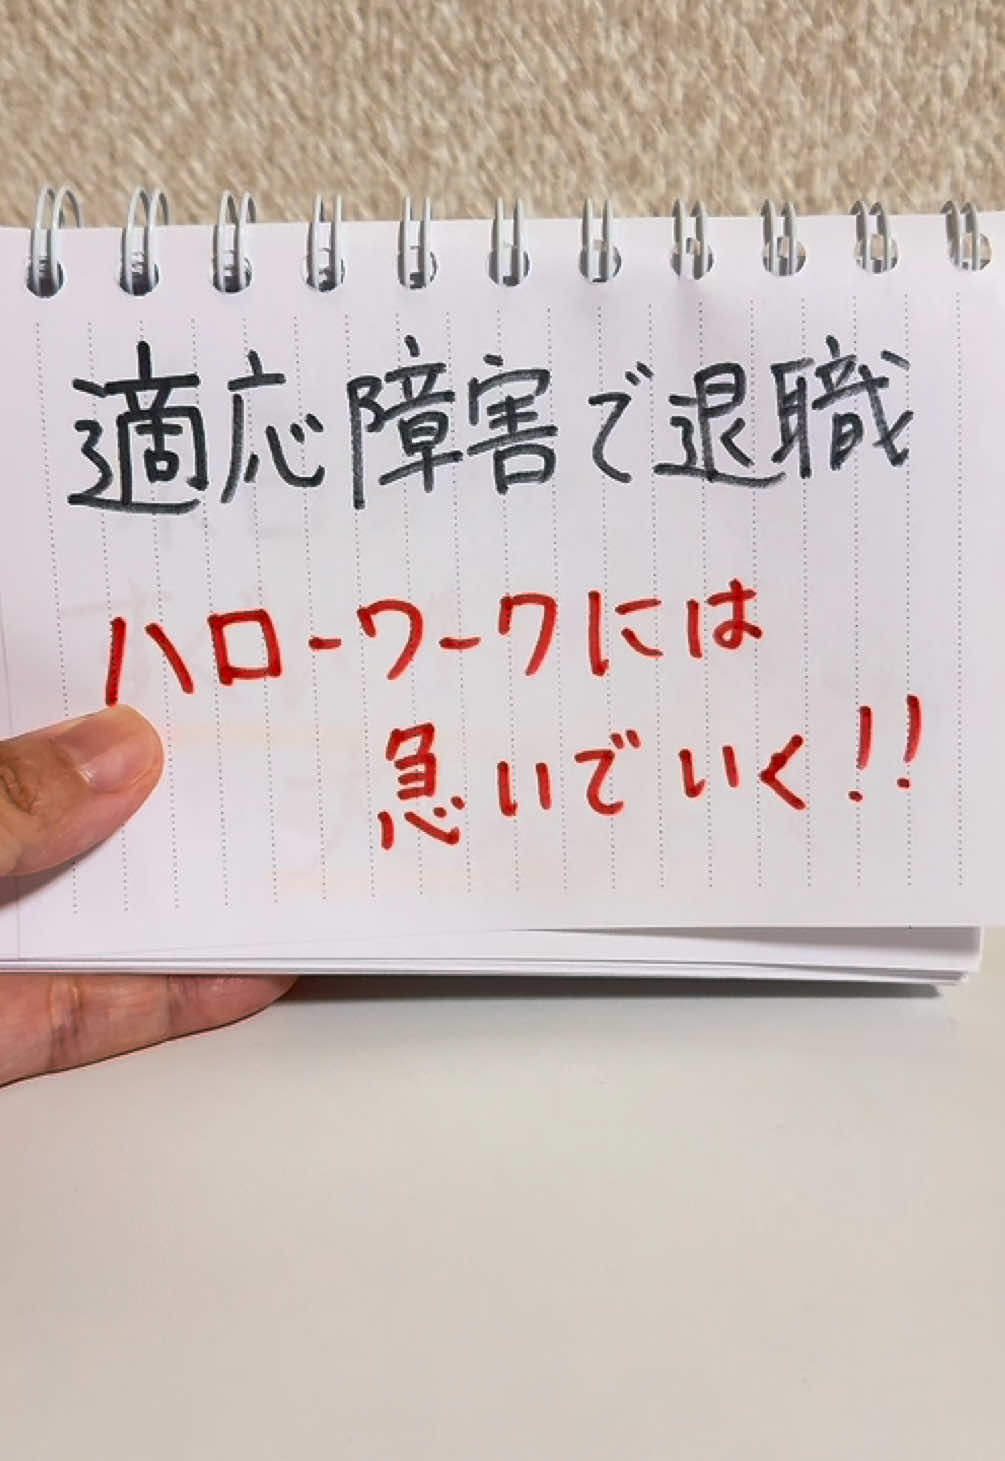 適応障害で退職
ハローワークには
急いでいく!!